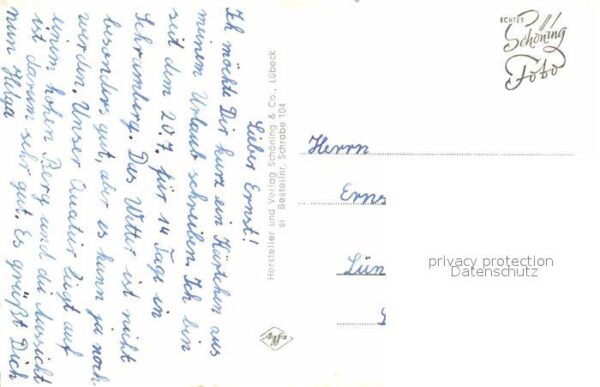 Lieber Ernst!
Ich möchte Dir kurz ein Kärtchen aus
meinem Urlaub schreiben. Ich bin
seit dem 20.7 für 14 Tage in
Schramberg. Das Wetter ist nicht
besonders gut, aber es kann ja noch
werden. Unser Quatier liegt auf
einem hohen Berg und die Aussicht
ist darum sehr gut. Es grüßt Dich
nun Helga
Hersteller und Verlag Schöning & Co., Lübeck
si Bestellnr. Schrabe 104
Agfa
ECHTES
Schöning
Foto
Herrn
Erns
Lün
privacy protection
Datenschutz